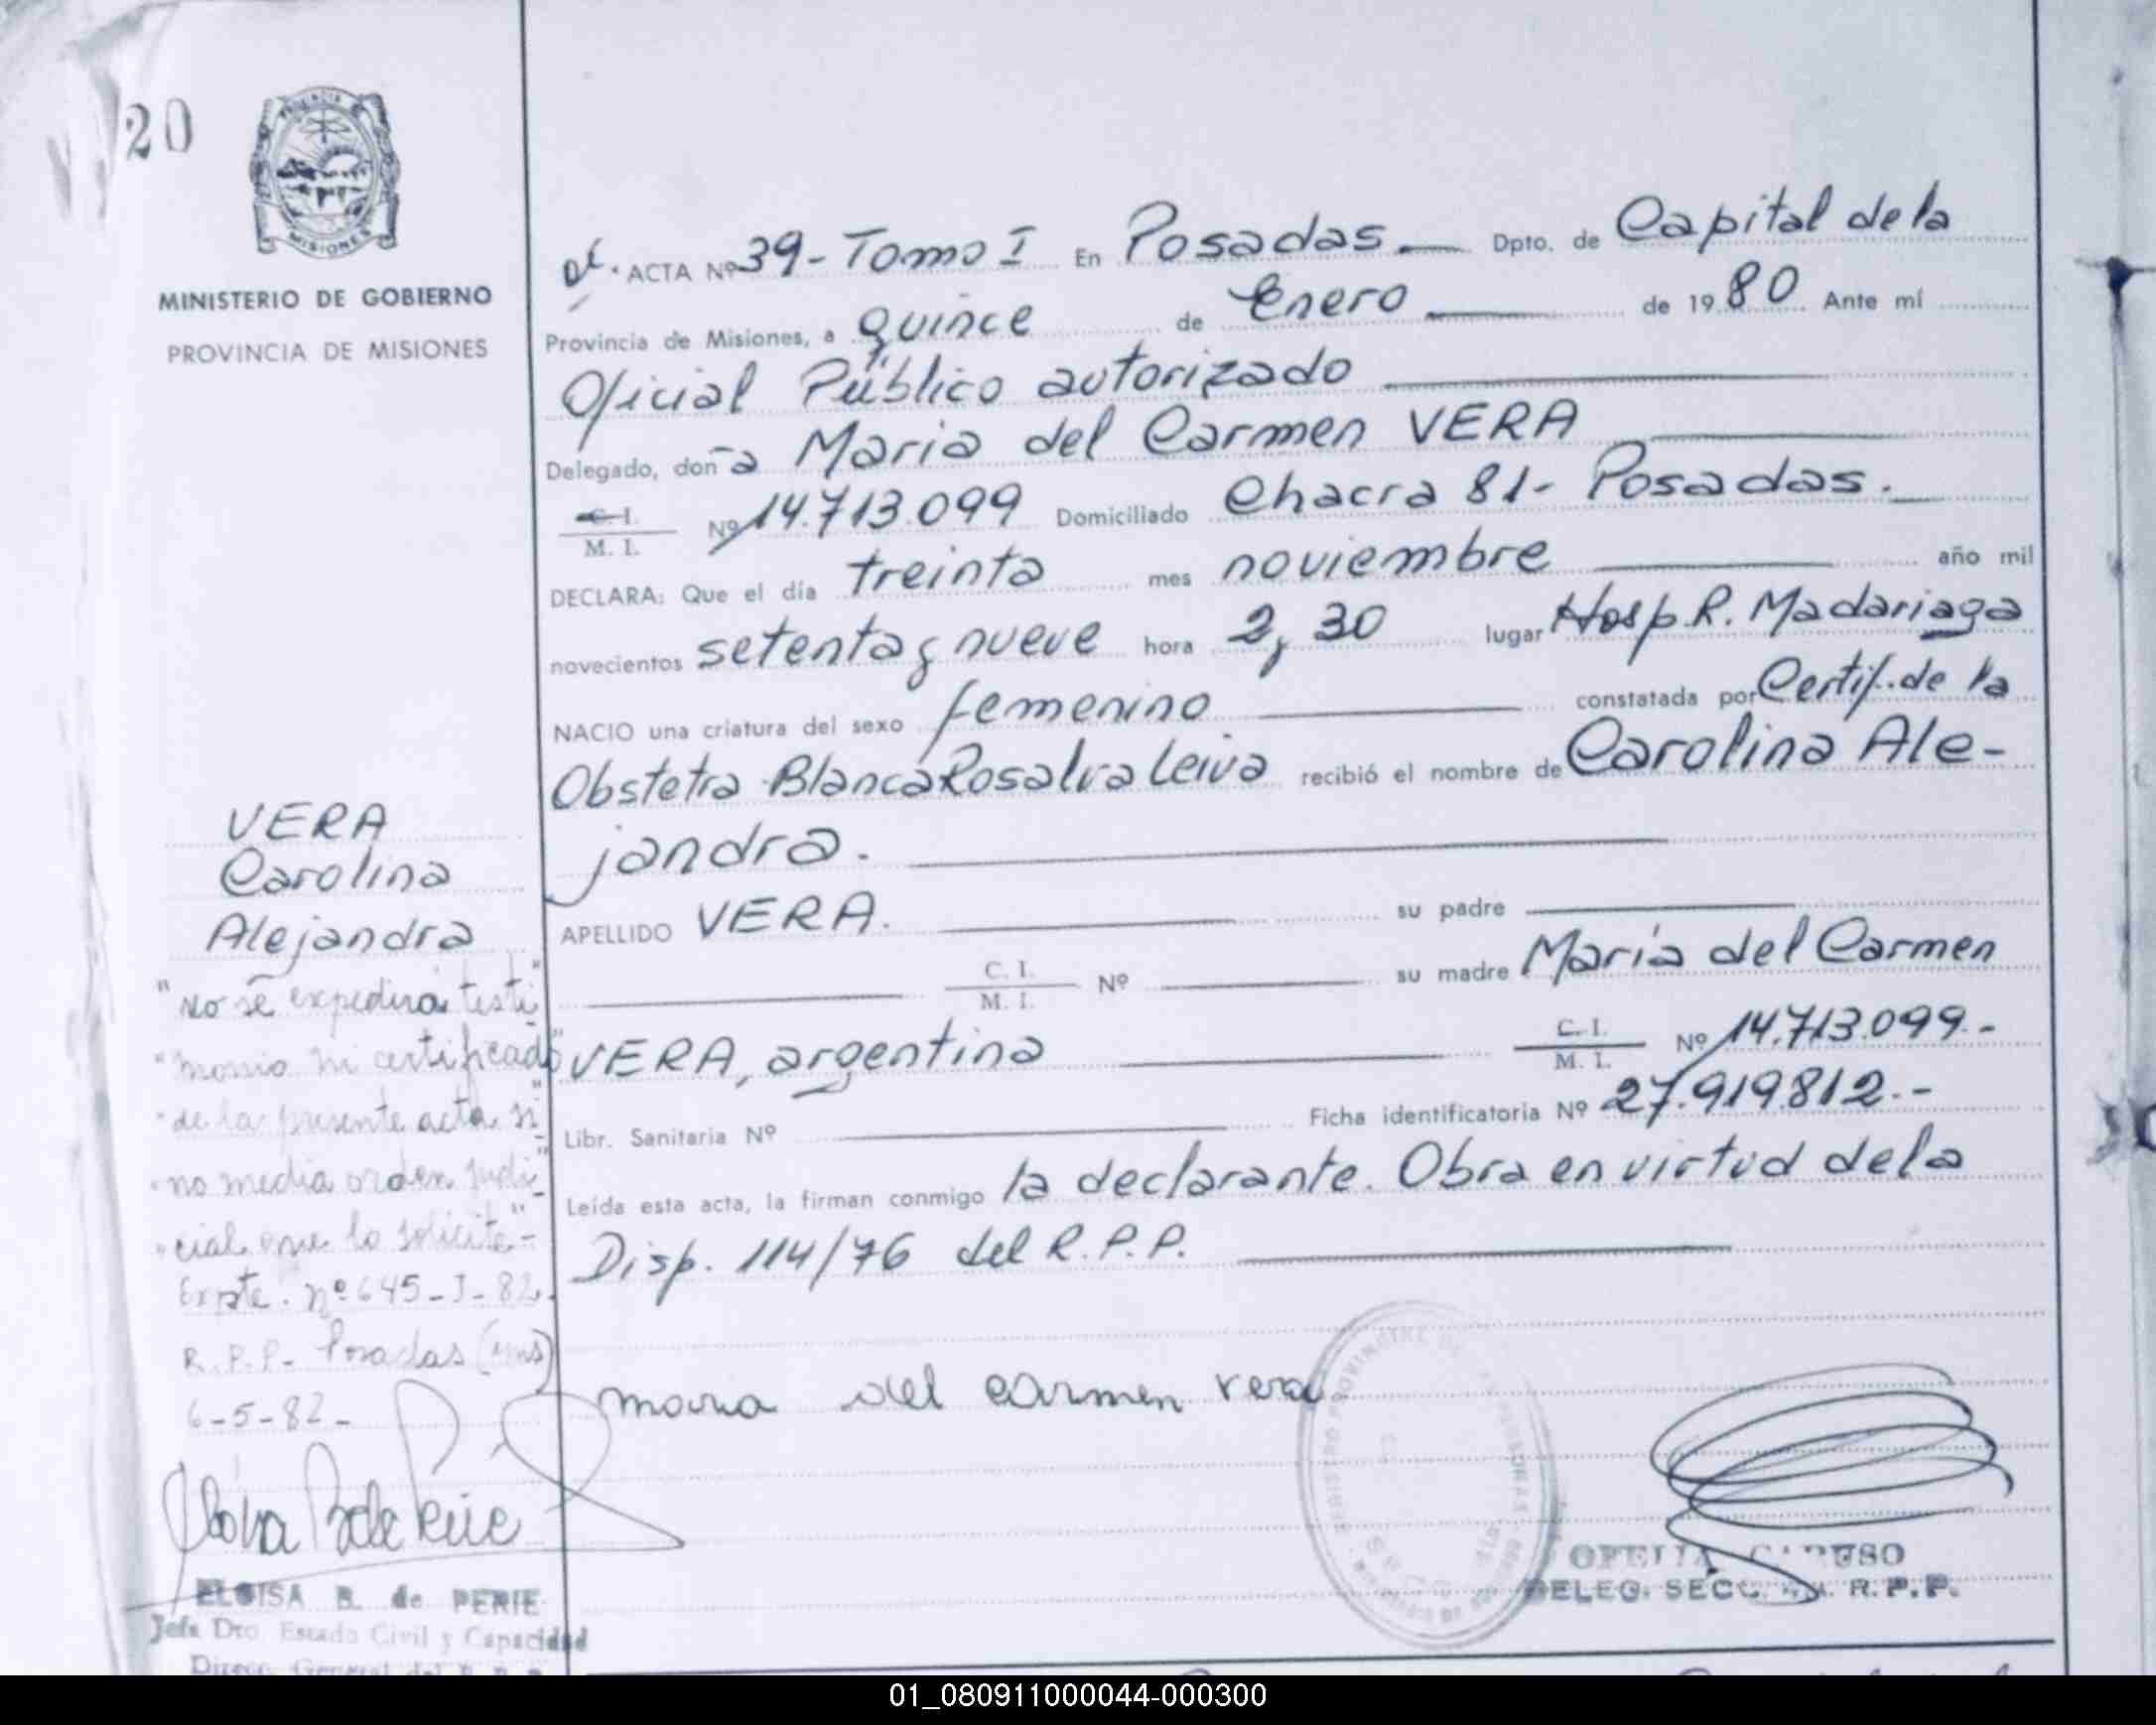 20
MISIONES
MINISTERIO DE GOBIERNO
PROVINCIA DE MISIONES
ACTA Nº 39-Tomo I En Posadas Dpto. de Capital de la
Provincia de Misiones, a quince de Enero de 1980 Ante mí
Oficial Público autorizado
Delegado, doña Maria del Carmen VERA
C. I.
M. I. Nº 14.713.099 Domiciliado Chacra 81- Posadas.
DECLARA: Que el día treinta mes noviembre año mil
novecientos setenta y nueve hora 2,30 lugar Hosp. R. Madariaga
NACIO una criatura del sexo femenino constatada por Certif. de la
Obstetra Blanca Rosalva Leiva recibió el nombre de Carolina Ale-
jandra.
APELLIDO VERA. su padre
C. I.
M. I. Nº su madre María del Carmen
VERA, argentina C. I.
M. I. Nº 14.713.099.-
Libr. Sanitaria Nº Ficha identificatoria Nº 27.919.812.-
Leída esta acta, la firman conmigo la declarante. Obra en virtud de la
Disp. 114/76 del R.P.P.
maria del carmen vera
OFELIA CARUSO
DELEG. SECC. R.P.P.
VERA
Carolina
Alejandra
"No se expedirá testi"
"monio ni certificado"
"de la presente acta si"
"no media orden judi"
"cial que lo solicite"-
Expte. nº 645-J-82.
R.P.P- Posadas (Mns)
6-5-82-
ELOISA B. de PERIE
Jefa Dto Estado Civil y Capacidad
Direcc. General del R.P.P.
01_080911000044-000300